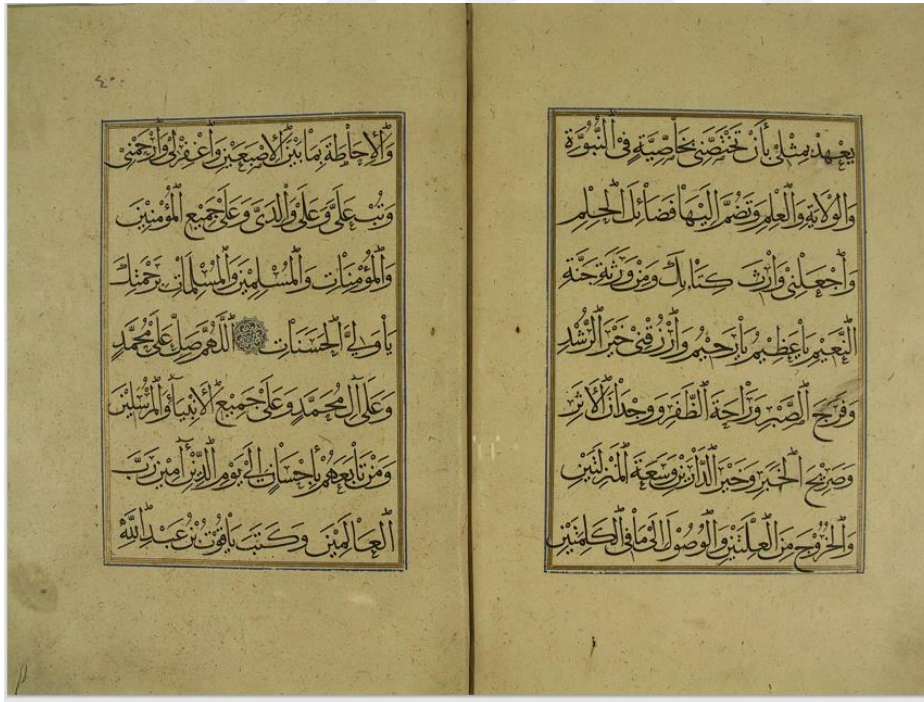 يعهد بمثلي بأن تختصني بخاصية في النبوة
والولاية والعلم وتضم إليها فضائل الحلم
واجعلني وارث كتابك ومن ورثة جنة
النعيم يا عظيم يا رحيم وارزقني خير الرشد
وفرج الصبر وراحة الظفر ووجدان الأثر
وصريح الخبر وخير الدارين وسعة المنزلتين
والخروج من العلتين والوصول الى ما في الكلمتين
٤٠
والإحاطة بما بين الاصبعين واغفر لي وارحمني
وتب علي وعلى والدي وعلى جميع المؤمنين
والمؤمنات والمسلمين والمسلمات برحمتك
يا ولي الحسنات اللهم صل على محمد
وعلى آل محمد وعلى جميع الانبياء والمرسلين
ومن تابعهم بإحسان الى يوم الدين آمين رب
العالمين وكتب ياقوت بن عبد الله